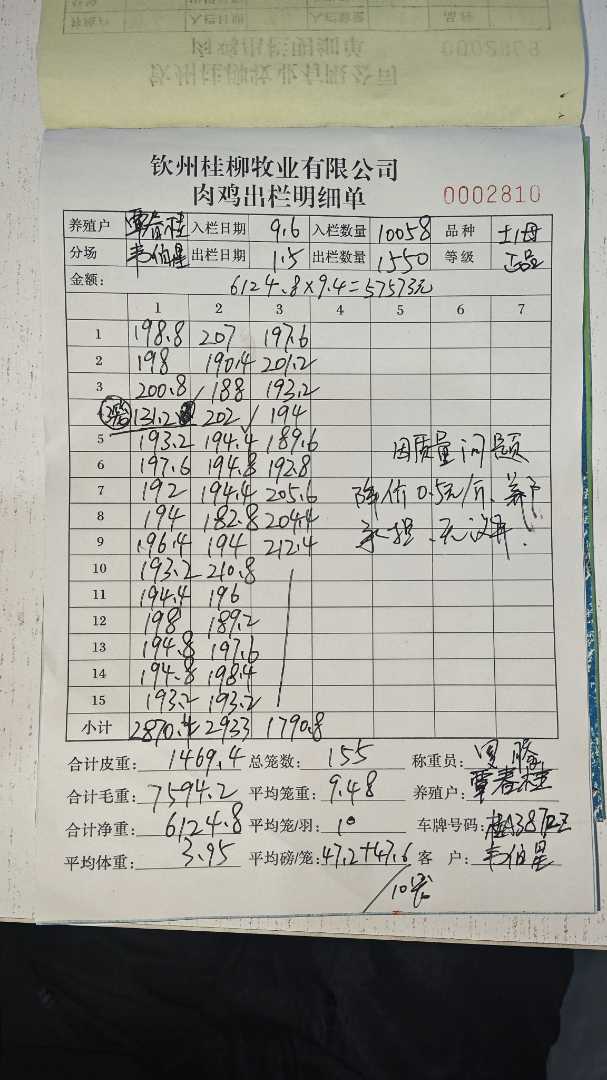 钦州桂柳牧业有限公司
肉鸡出栏明细单 0002810
养殖户 覃春桂 入栏日期 9.6 入栏数量 10058 品种 土1母
分场 韦伯星 出栏日期 1.5 出栏数量 1550 等级 正品
金额: 6124.8×9.4=57573元
1 2 3 4 5 6 7
1 198.8 207 197.6
2 198 190.4 201.2
3 200.8 188 193.2
131.2 202 194
5 193.2 194.4 189.6
6 197.6 194.8 192.8
因质量问题
7 192 194.4 205.6
降价0.5元/斤、养户
8 194 182.8 204.4
9 196.4 194 212.4
承担、无议异!
10 193.2 210.8
11 194.4 196
12 198 189.2
13 194.8 197.6
14 194.8 198.4
15 193.2 193.2
小计 2870.4 2933 1790.8
合计皮重: 1469.4 总笼数: 155 称重员:
合计毛重: 7594.2 平均笼重: 9.48 养殖户: 覃春桂
合计净重: 6124.8 平均笼/羽: 10 车牌号码:
平均体重: 3.95 平均磅/笼: 47.2+47.6 客 户: 韦伯星